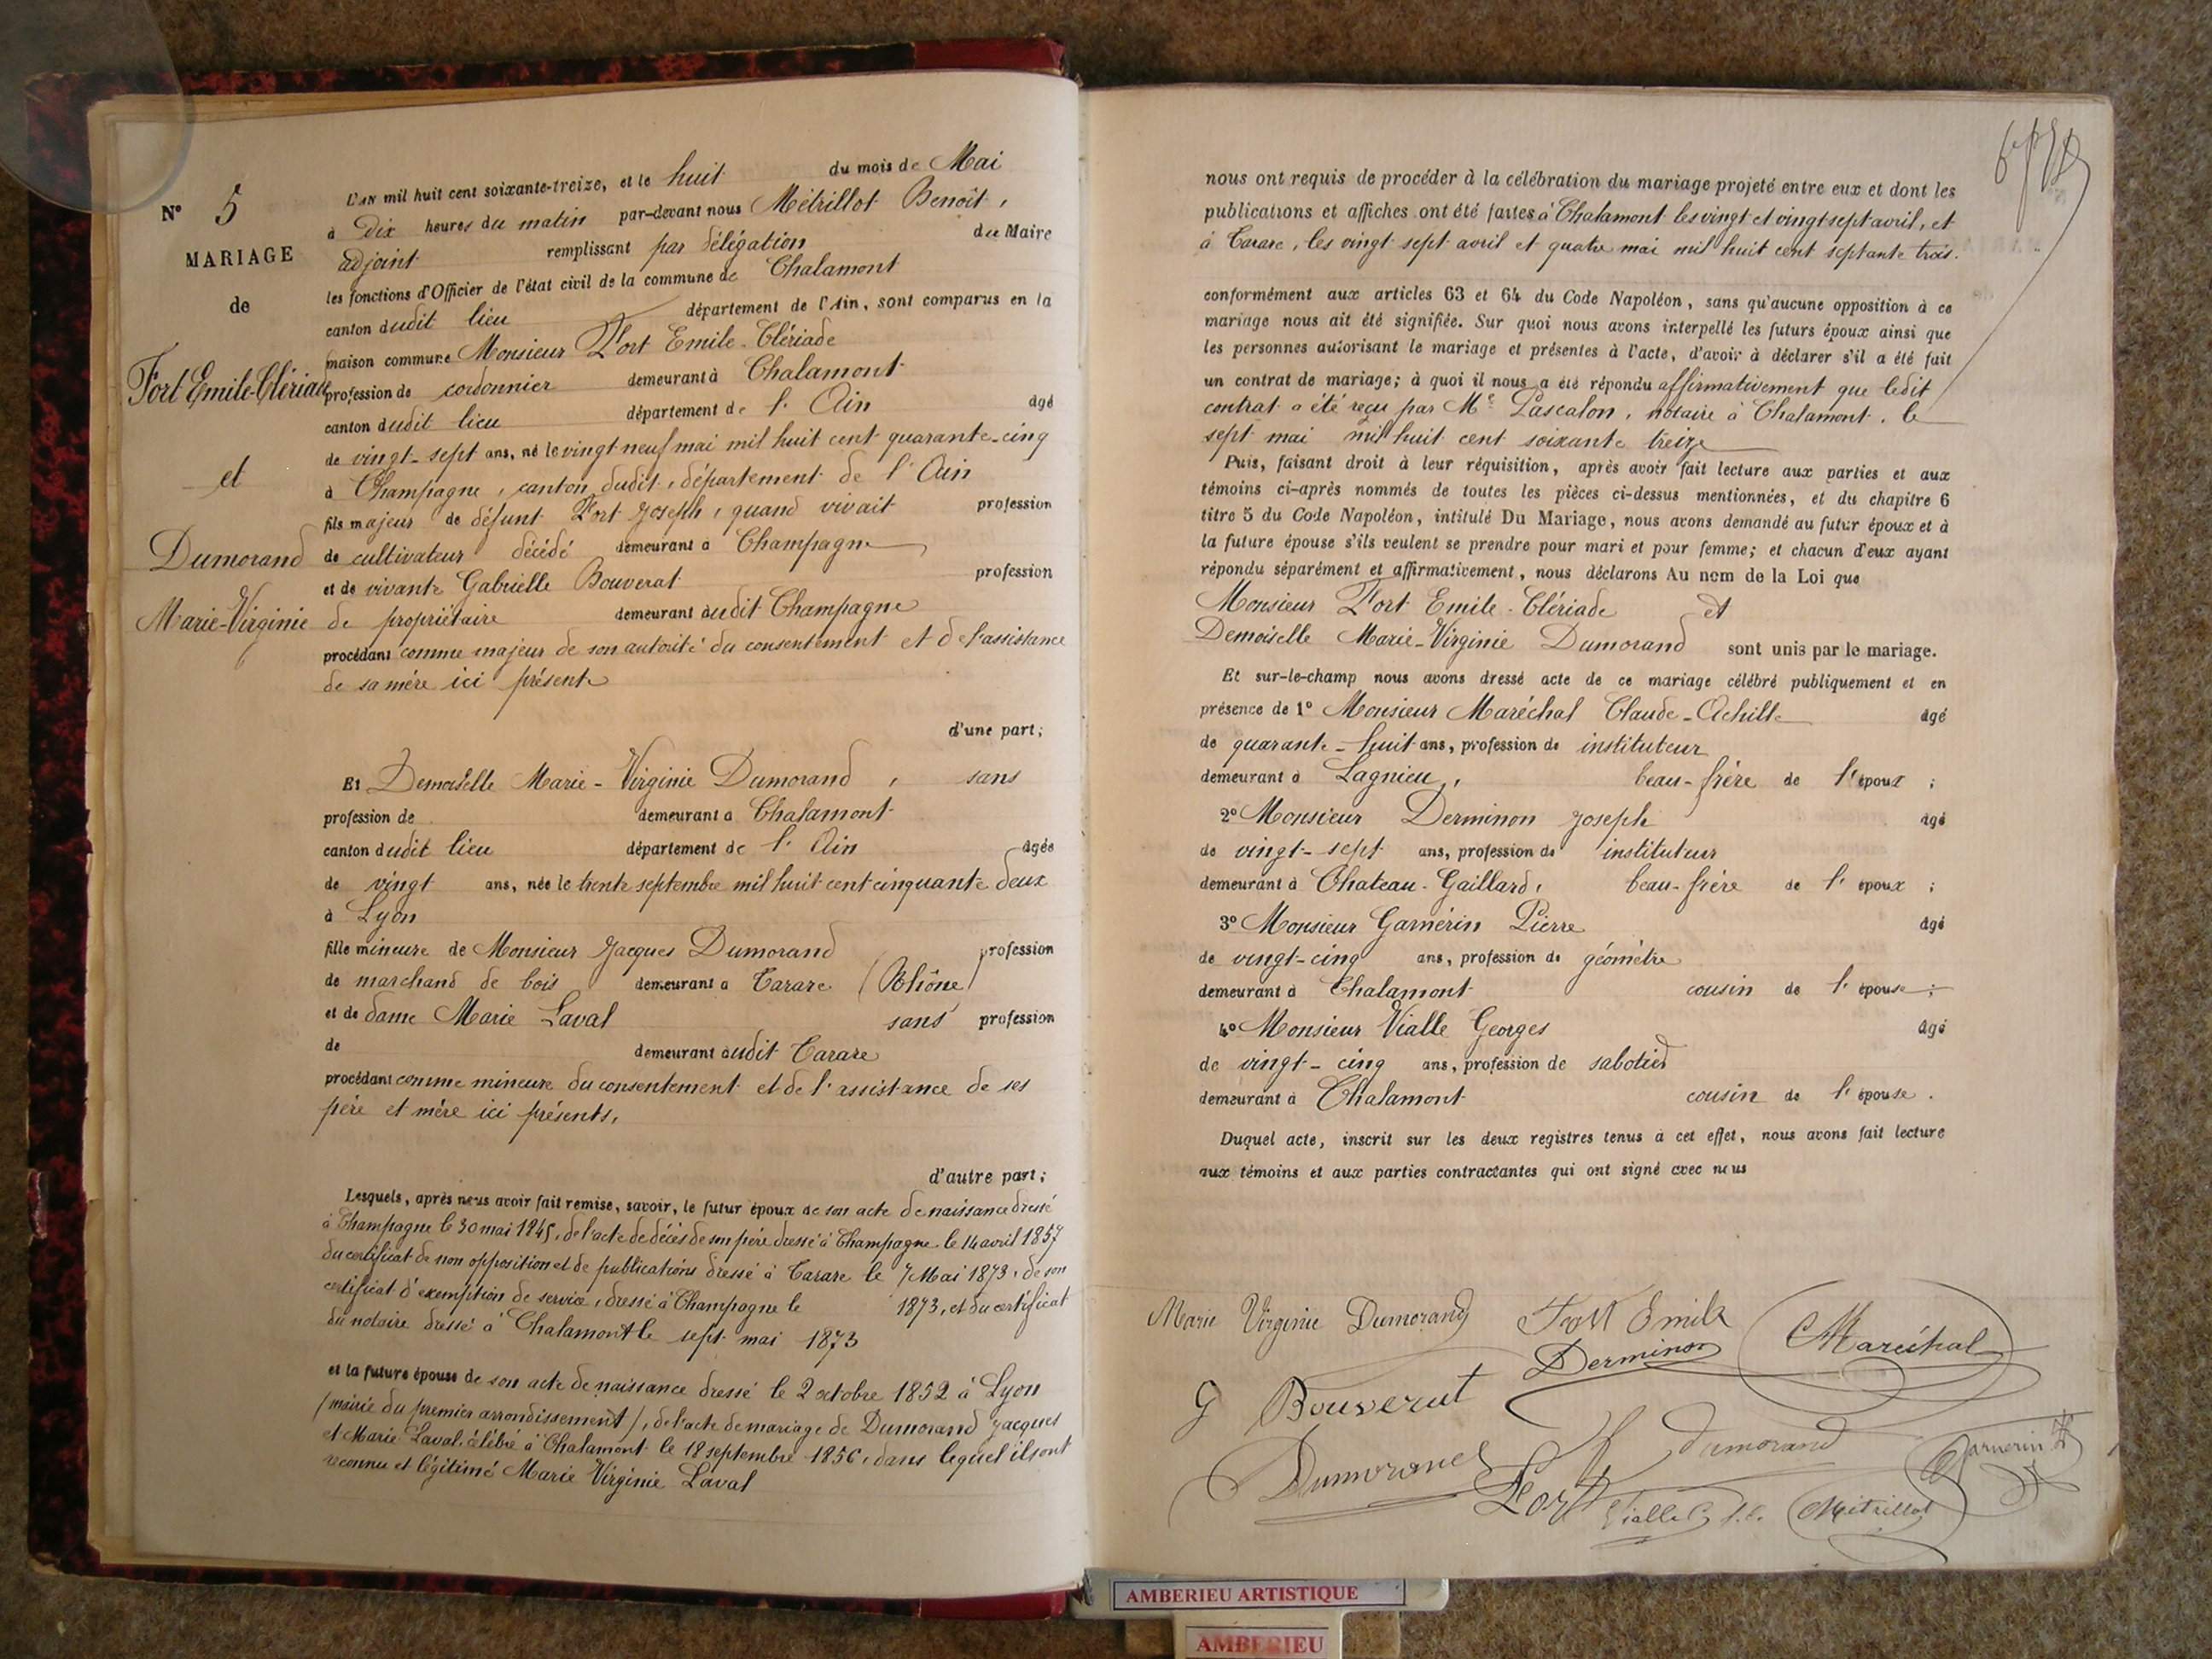 N° 5
MARIAGE
de
Fort Emile-Clériade
et
Dumorand
Marie-Virginie
L'AN mil huit cent soixante-treize, et le huit du mois de Mai
à dix heures du matin par-devant nous Métrillot Benoît,
adjoint remplissant par délégation du Maire
les fonctions d'Officier de l'état civil de la commune de Chalamont
canton dudit lieu département de l'Ain, sont comparus en la
maison commune Monsieur Fort Emile-Clériade
profession de cordonnier demeurant à Chalamont
canton dudit lieu département de l'Ain âgé
de vingt-sept ans, né le vingt neuf mai mil huit cent quarante-cinq
à Champagne, canton dudit, département de l'Ain
fils majeur de défunt Fort Joseph, quand vivait profession
de cultivateur décédé demeurant à Champagne
et de vivante Gabrielle Bouverat profession
de propriétaire demeurant audit Champagne
procédant comme majeur de son autorité du consentement et de l'assistance
de sa mère ici présente
d'une part;
Et Demoiselle Marie-Virginie Dumorand, sans
profession de demeurant à Chalamont
canton dudit lieu département de l'Ain âgée
de vingt ans, née le trente septembre mil huit cent cinquante deux
à Lyon
fille mineure de Monsieur Jacques Dumorand profession
de marchand de bois demeurant à Tarare (Rhône)
et de dame Marie Laval sans profession
de demeurant audit Tarare
procédant comme mineure du consentement et de l'assistance de ses
père et mère ici présents,
d'autre part;
Lesquels, après nous avoir fait remise, savoir, le futur époux de son acte de naissance dressé
à Champagne le 30 mai 1845, de l'acte de décès de son père dressé à Champagne le 14 avril 1857
du certificat de non opposition et de publications dressé à Tarare le 7 Mai 1873, de son
certificat d'exemption de service, dressé à Champagne le 1873, et du certificat
du notaire dressé à Chalamont le sept mai 1873
et la future épouse de son acte de naissance dressé le 2 octobre 1852 à Lyon
/mairie du premier arrondissement/, de l'acte de mariage de Dumorand Jacques
et Marie Laval célébré à Chalamont le 18 septembre 1856, dans lequel ils ont
reconnu et légitimé Marie Virginie Laval
nous ont requis de procéder à la célébration du mariage projeté entre eux et dont les
publications et affiches ont été faites à Chalamont les vingt et vingt sept avril, et
à Tarare, les vingt sept avril et quatre mai mil huit cent septante trois.
conformément aux articles 63 et 64 du Code Napoléon, sans qu'aucune opposition à ce
mariage nous ait été signifiée. Sur quoi nous avons interpellé les futurs époux ainsi que
les personnes autorisant le mariage et présentes à l'acte, d'avoir à déclarer s'il a été fait
un contrat de mariage; à quoi il nous a été répondu affirmativement que ledit
contrat a été reçu par Me Pascalon, notaire à Chalamont, le
sept mai mil huit cent soixante treize
Puis, faisant droit à leur réquisition, après avoir fait lecture aux parties et aux
témoins ci-après nommés de toutes les pièces ci-dessus mentionnées, et du chapitre 6
titre 5 du Code Napoléon, intitulé Du Mariage, nous avons demandé au futur époux et à
la future épouse s'ils veulent se prendre pour mari et pour femme; et chacun d'eux ayant
répondu séparément et affirmativement, nous déclarons Au nom de la Loi que
Monsieur Fort Emile-Clériade et
Demoiselle Marie-Virginie Dumorand sont unis par le mariage.
Et sur-le-champ nous avons dressé acte de ce mariage célébré publiquement et en
présence de 1° Monsieur Maréchal Claude-Achille âgé
de quarante-huit ans, profession de instituteur
demeurant à Lagnieu, beau-frère de l'époux ;
2° Monsieur Derminon Joseph âgé
de vingt-sept ans, profession de instituteur
demeurant à Chateau-Gaillard, beau-frère de l'époux ;
3° Monsieur Garnérin Pierre âgé
de vingt-cinq ans, profession de géomètre
demeurant à Chalamont cousin de l'épouse ;
4° Monsieur Vialle Georges âgé
de vingt-cinq ans, profession de sabotier
demeurant à Chalamont cousin de l'épouse.
Duquel acte, inscrit sur les deux registres tenus à cet effet, nous avons fait lecture
aux témoins et aux parties contractantes qui ont signé avec nous
Marie Virginie Dumorand Fort Emile
Derminon Maréchal
G Bouverat
Dumorand Dumorand Garnerin
Fort Vialle Métrillot
AMBERIEU ARTISTIQUE
AMBERIEU